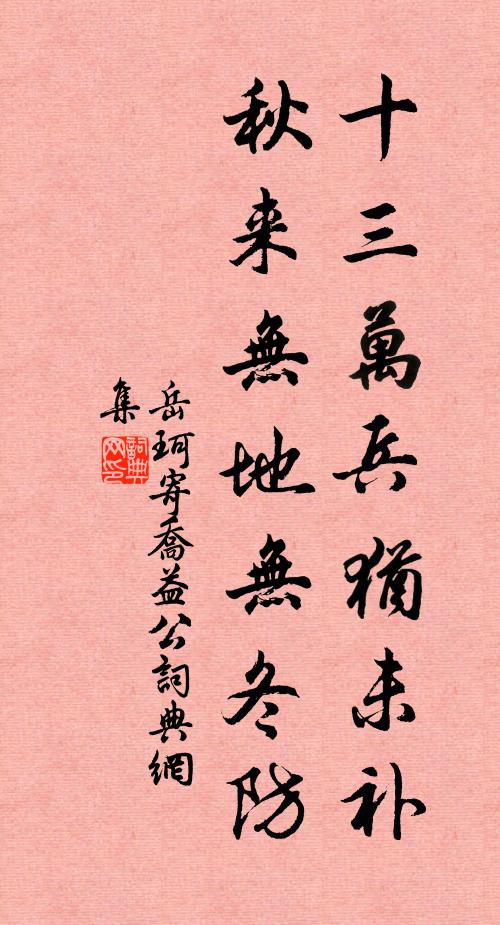 十三萬兵猶未补
秋来無地無冬防
岳珂寄喬益公詞典網
集
詞典网印